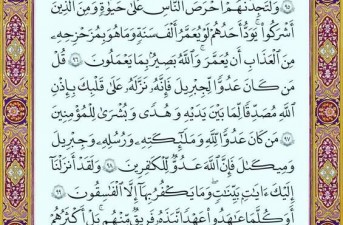 ٩٥ وَلَتَجِدَنَّهُمْ أَحْرَصَ النَّاسِ عَلَىٰ حَيَوٰةٍ وَمِنَ الَّذِينَ
أَشْرَكُوا۟ يَوَدُّ أَحَدُهُمْ لَوْ يُعَمَّرُ أَلْفَ سَنَةٍ وَمَا هُوَ بِمُزَحْزِحِهِۦ
مِنَ الْعَذَابِ أَن يُعَمَّرَ وَاللَّهُ بَصِيرٌۢ بِمَا يَعْمَلُونَ ٩٦ قُلْ
مَن كَانَ عَدُوًّا لِّجِبْرِيلَ فَإِنَّهُۥ نَزَّلَهُۥ عَلَىٰ قَلْبِكَ بِإِذْنِ
اللَّهِ مُصَدِّقًا لِّمَا بَيْنَ يَدَيْهِ وَهُدًى وَبُشْرَىٰ لِلْمُؤْمِنِينَ
٩٧ مَن كَانَ عَدُوًّا لِّلَّهِ وَمَلَٰٓئِكَتِهِۦ وَرُسُلِهِۦ وَجِبْرِيلَ
وَمِيكَىٰلَ فَإِنَّ اللَّهَ عَدُوٌّ لِّلْكَٰفِرِينَ ٩٨ وَلَقَدْ أَنزَلْنَآ
إِلَيْكَ ءَايَٰتٍۭ بَيِّنَٰتٍ وَمَا يَكْفُرُ بِهَآ إِلَّا الْفَٰسِقُونَ ٩٩
أَوَكُلَّمَا عَٰهَدُوا۟ عَهْدًا نَّبَذَهُۥ فَرِيقٌ مِّنْهُم بَلْ أَكْثَرُهُمْ